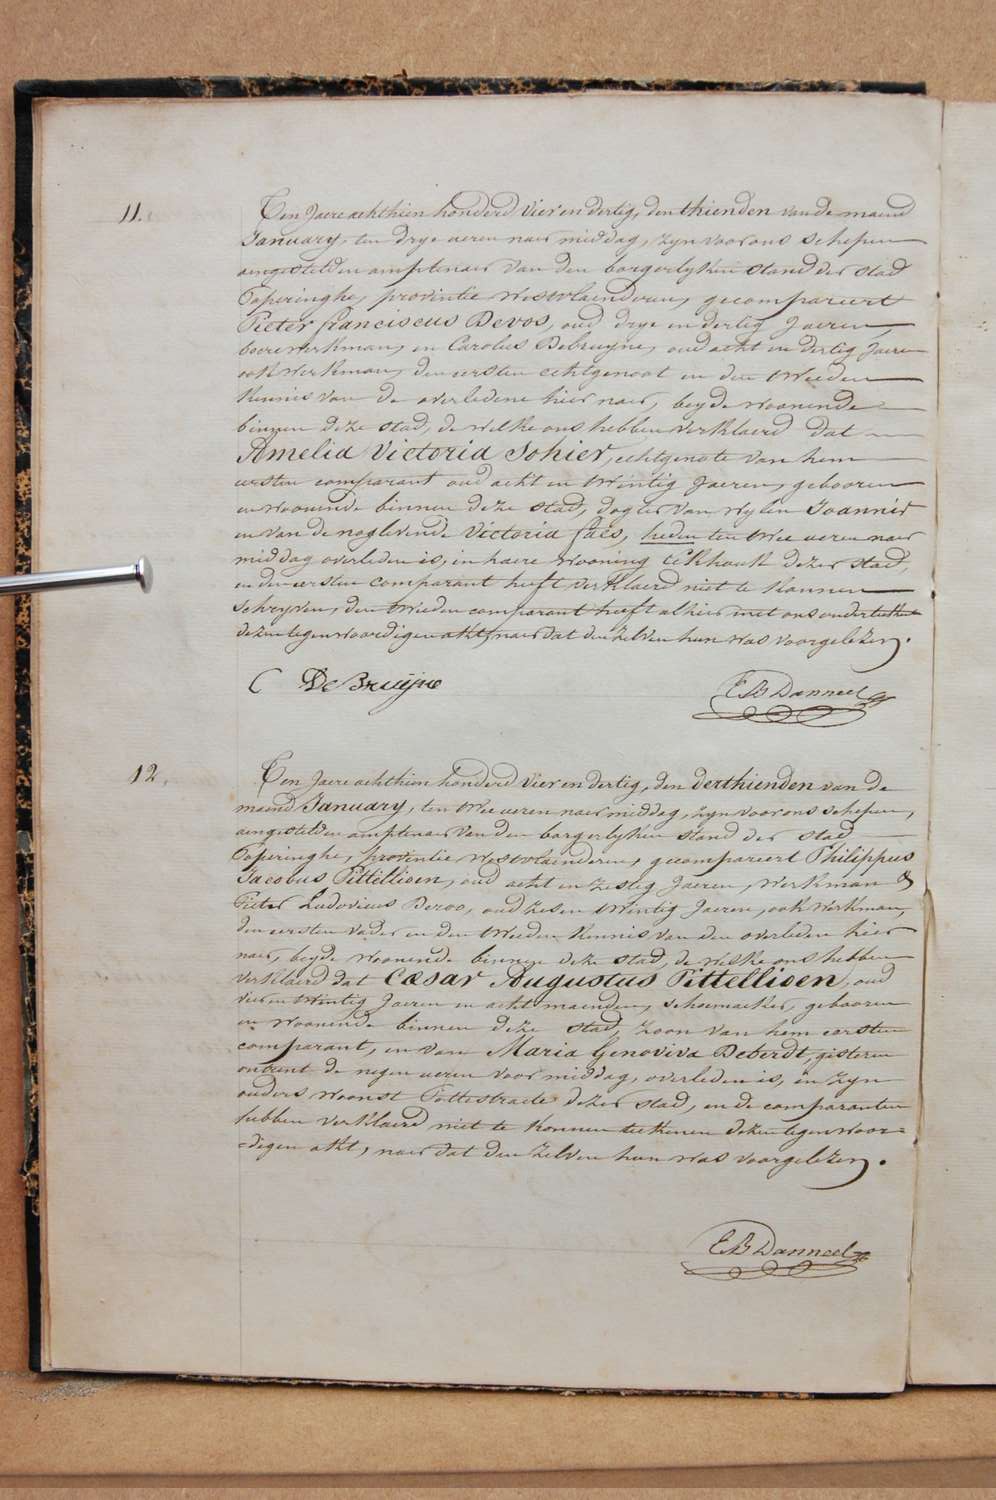 11.
Ten Jaere achthien honderd vier en dertig, den thienden van de maend
January, ten drye ueren naer middag, zyn voor ons schepen
aengestelden amptenaer van den borgerlyken stand der stad
Poperinghe, provintie Westvlaenderen, gecompareert
Pieter franciscus Devos, oud drye en dertig Jaeren,
boerewerkman, en Carolus Debruyne, oud acht en dertig Jaeren
ook Werkman, den eersten echtgenoot en den tweeden
Kennis van de overledene hier naer, beyde woonende
binnen deze stad, de welke ons hebben verklaerd dat
Amelia Victoria Sohier, echtgenote van hem
eersten comparant oud acht en twintig Jaeren, gebooren
en woonende binnen deze stad, dogter van wylen Joannis
en van de noglevende Victoria faes, heden ten twee ueren naer
middag overleden is, in haere wooning Eekhoutk dezer stad,
en den eersten comparant heeft verklaerd niet te konnen
schryven, den tweeden comparant heeft alhier met ons onderteekent
dezen tegenwoordigen akt, naer dat den zelven hun was voorgelezen.
C DeBruyne
E B Danneel
12.
Ten Jaere achthien honderd vier en dertig, den derthienden van de
maend January, ten twee ueren naer middag, zyn voor ons schepen,
aengestelden amptenaer van den borgerlyken stand der stad
Poperinghe, provintie Westvlaenderen, gecompareert Philippus
Jacobus Pittellioen, oud acht en zestig Jaeren, Werkman &
Pieter Ludovicus Deroo, oud zes en twintig Jaeren, ook Werkman,
den eersten vader en den tweeden Kennis van den overleden hier
naer, beyde woonende binnen deze stad, de welke ons hebben
verklaerd dat Cæsar Augustus Pittellioen, oud
vier en twintig Jaeren en acht maenden, schoemaeker, gebooren
en woonende binnen deze stad, zoon van hem eersten
comparant, en van Maria Genoviva Deberdt, gisteren
ontrent de negen ueren voor middag, overleden is, in zyn
ouders woonst Pottestraete dezer stad, en de comparanten
hebben verklaerd niet te konnen teekenen dezen tegenwoor=
=digen akt, naer dat den zelven hun was voorgelezen.
E B Danneel